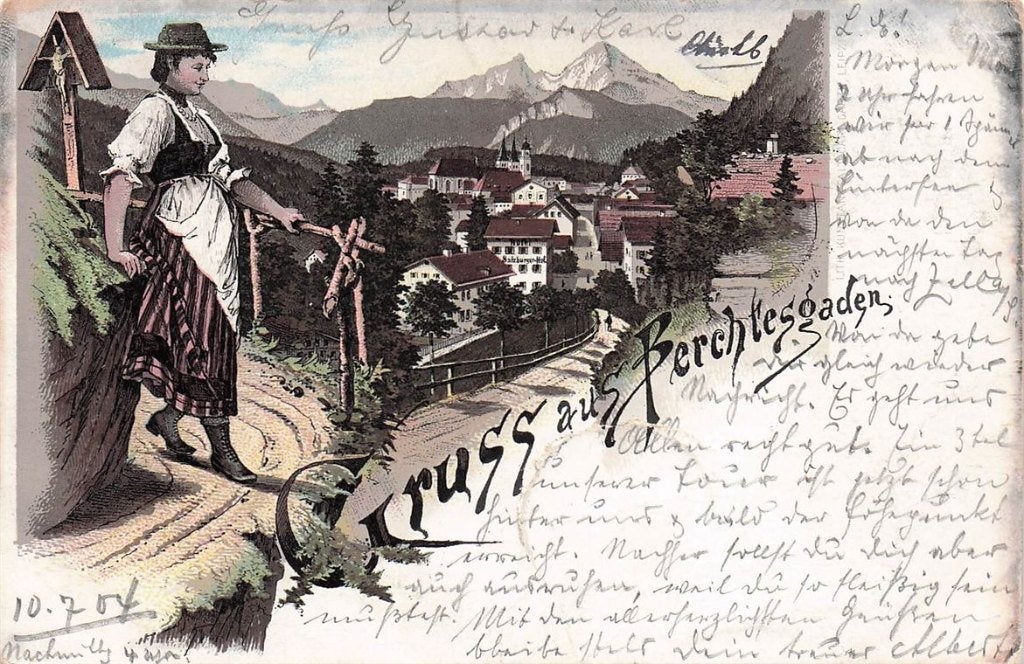 Gruss Gustav & Karl
L. E!
Morgen
7 Uhr fahren
wir per 1 Spänn
ab nach dem
Hintersee &
von da den
nächsten Tag
nach Zell a/
Von da gebe
Dir gleich wieder
Nachricht. Es geht uns
Allen recht gut. Ein 3tel
unserer Tour ist jetzt schon
hinter uns & bald der Höhepunkt
erreicht. Nachher sollst Du Dich aber
auch ausruhen, weil Du so fleißig sein
mußtest. Mit den allerherzlichsten Grüßen
bleibe stets Dein treuer Albert
Salzburger-Hof
Gruss aus Berchtesgaden
10.7 04
Nachmittg 4 Uhr.